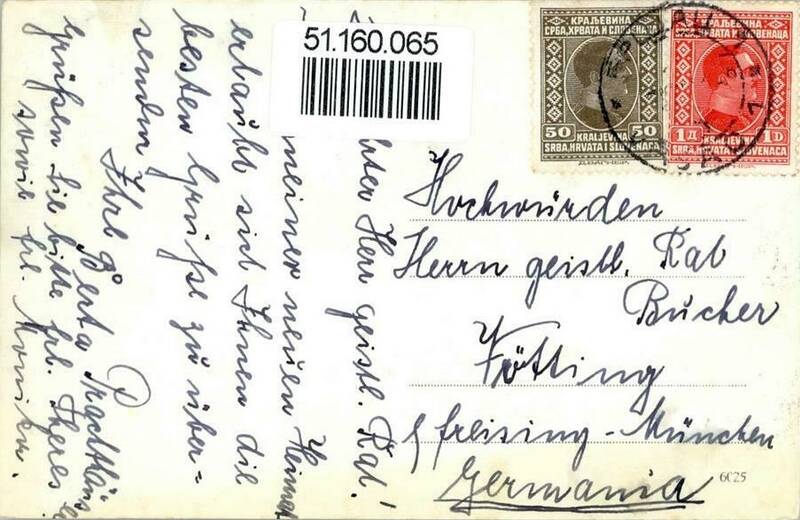 51.160.065
КРАЉЕВИНА
СРБА, ХРВАТА И СЛОВЕНАЦА
50 KRALJEVINA 50
SRBA, HRVATA I SLOVENACA
КРАЉЕВИНА
СРБА, ХРВАТА И СЛОВЕНАЦА
1 Д KRALJEVINA 1 D
SRBA, HRVATA I SLOVENACA
Herr geistl. Rat!
meiner neuen Heimat
erlaubt sich Ihnen die
besten Grüße zu über=
senden
Ihre Berta
Grüßen Sie bitte frl. Theres
sowie frl.
Hochwürden
Herrn geistl. Rat
Bucher
Vötting
freising-München
Germania
6025